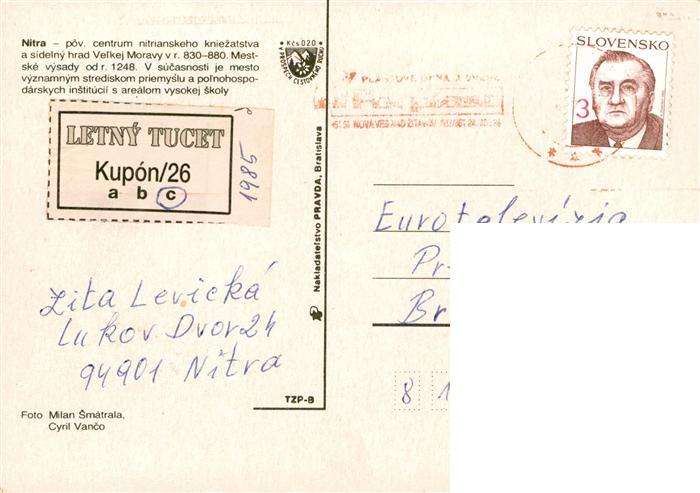 Nitra – pôv. centrum nitrianskeho kniežatstva
a sídelný hrad Veľkej Moravy v r. 830–880. Mest-
ské výsady od r. 1248. V súčasnosti je mesto
významným strediskom priemyslu a poľnohospo-
dárskych inštitúcií s areálom vysokej školy
Kčs 0,20
LETNÝ TUCET
Kupón/26
a b c
1985
Zita Levická
Lukov Dvor 2h
94901 Nitra
Foto Milan Šmátrala,
Cyril Vančo
TZP-B
Nakladateľstvo PRAVDA, Bratislava
SLOVENSKO
3
Eurotelevízia
Pr
Br
8 1